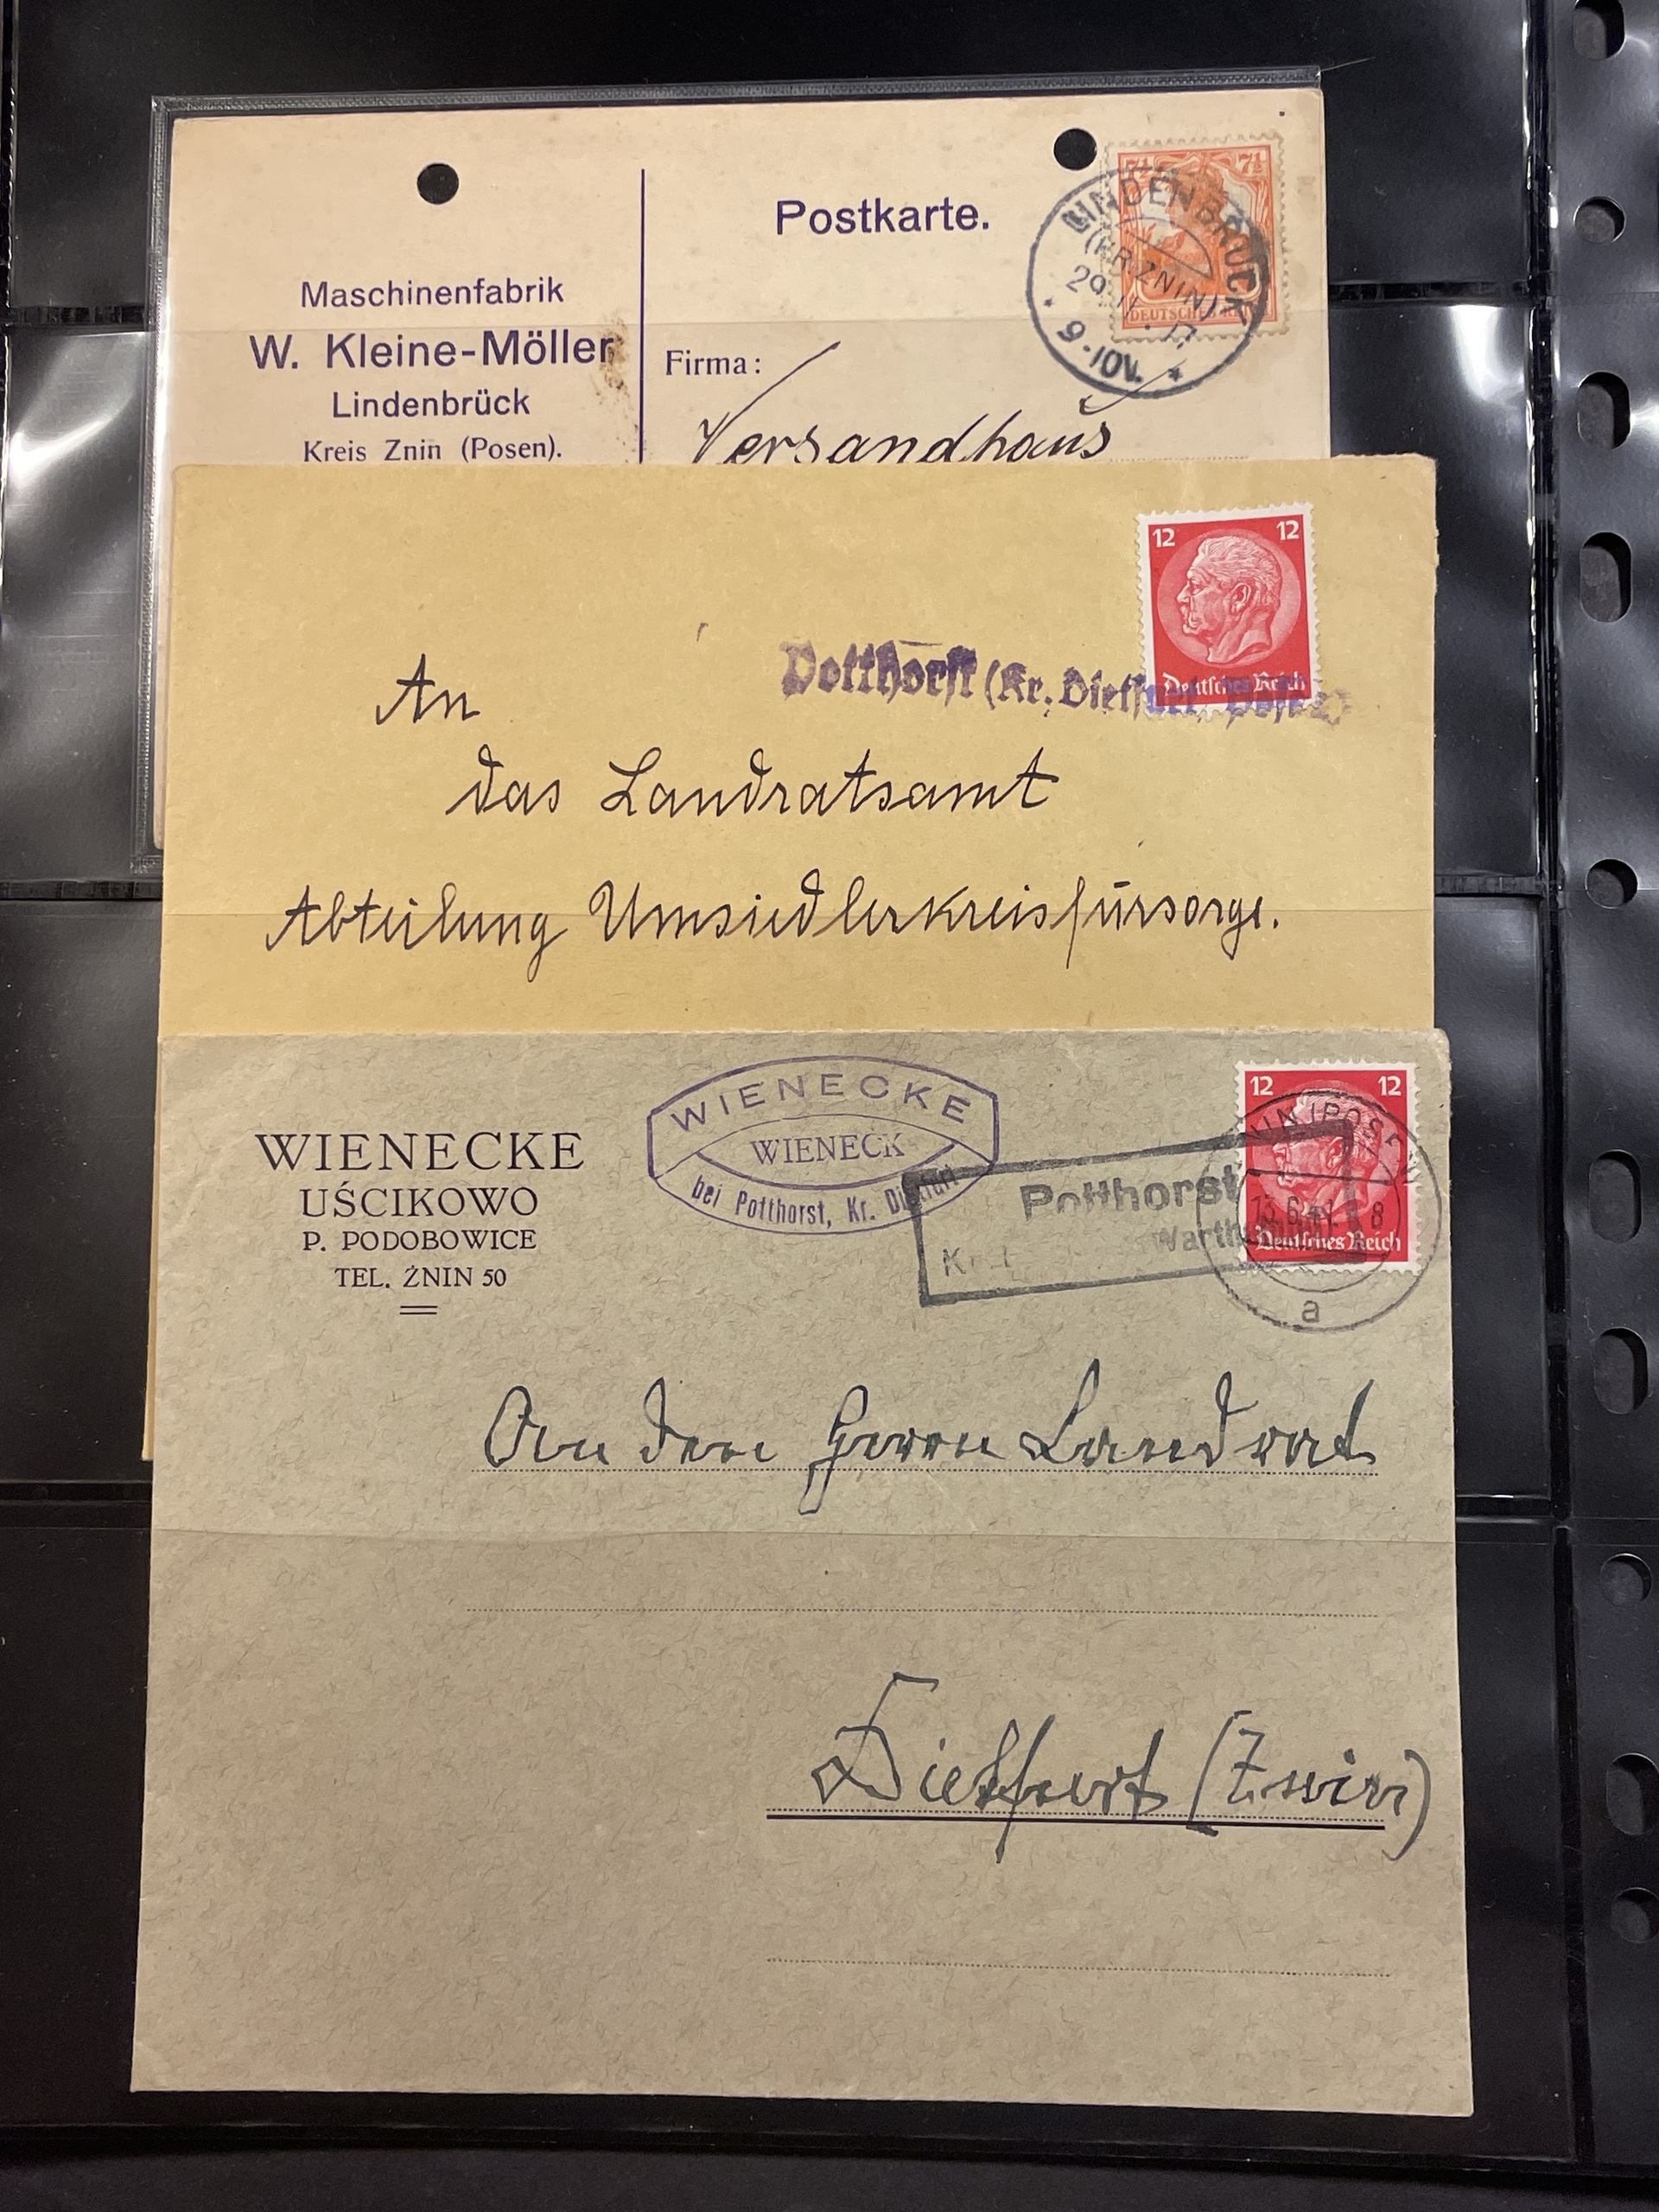 Postkarte.
Maschinenfabrik
W. Kleine-Möller
Lindenbrück
Kreis Znin (Posen).
Firma:
Versandhaus
7½ 7½
DEUTSCHES REICH
LINDENBRÜCK
(KR. ZNIN)
29.11.17
9-10V.
12 12
Deutsches Reich
Potthorst (Kr. Dietfurt
An
das Landratsamt
Abteilung Umsiedlerkreisfürsorge.
WIENECKE
UŚCIKOWO
P. PODOBOWICE
TEL. ŻNIN 50
WIENECKE
WIENECK
bei Potthorst, Kr. Dietfurt
Potthorst
Warth
12 12
Deutsches Reich
13.6.41. 8
a
An den Herrn Landrat
Dietfurt (Znin)